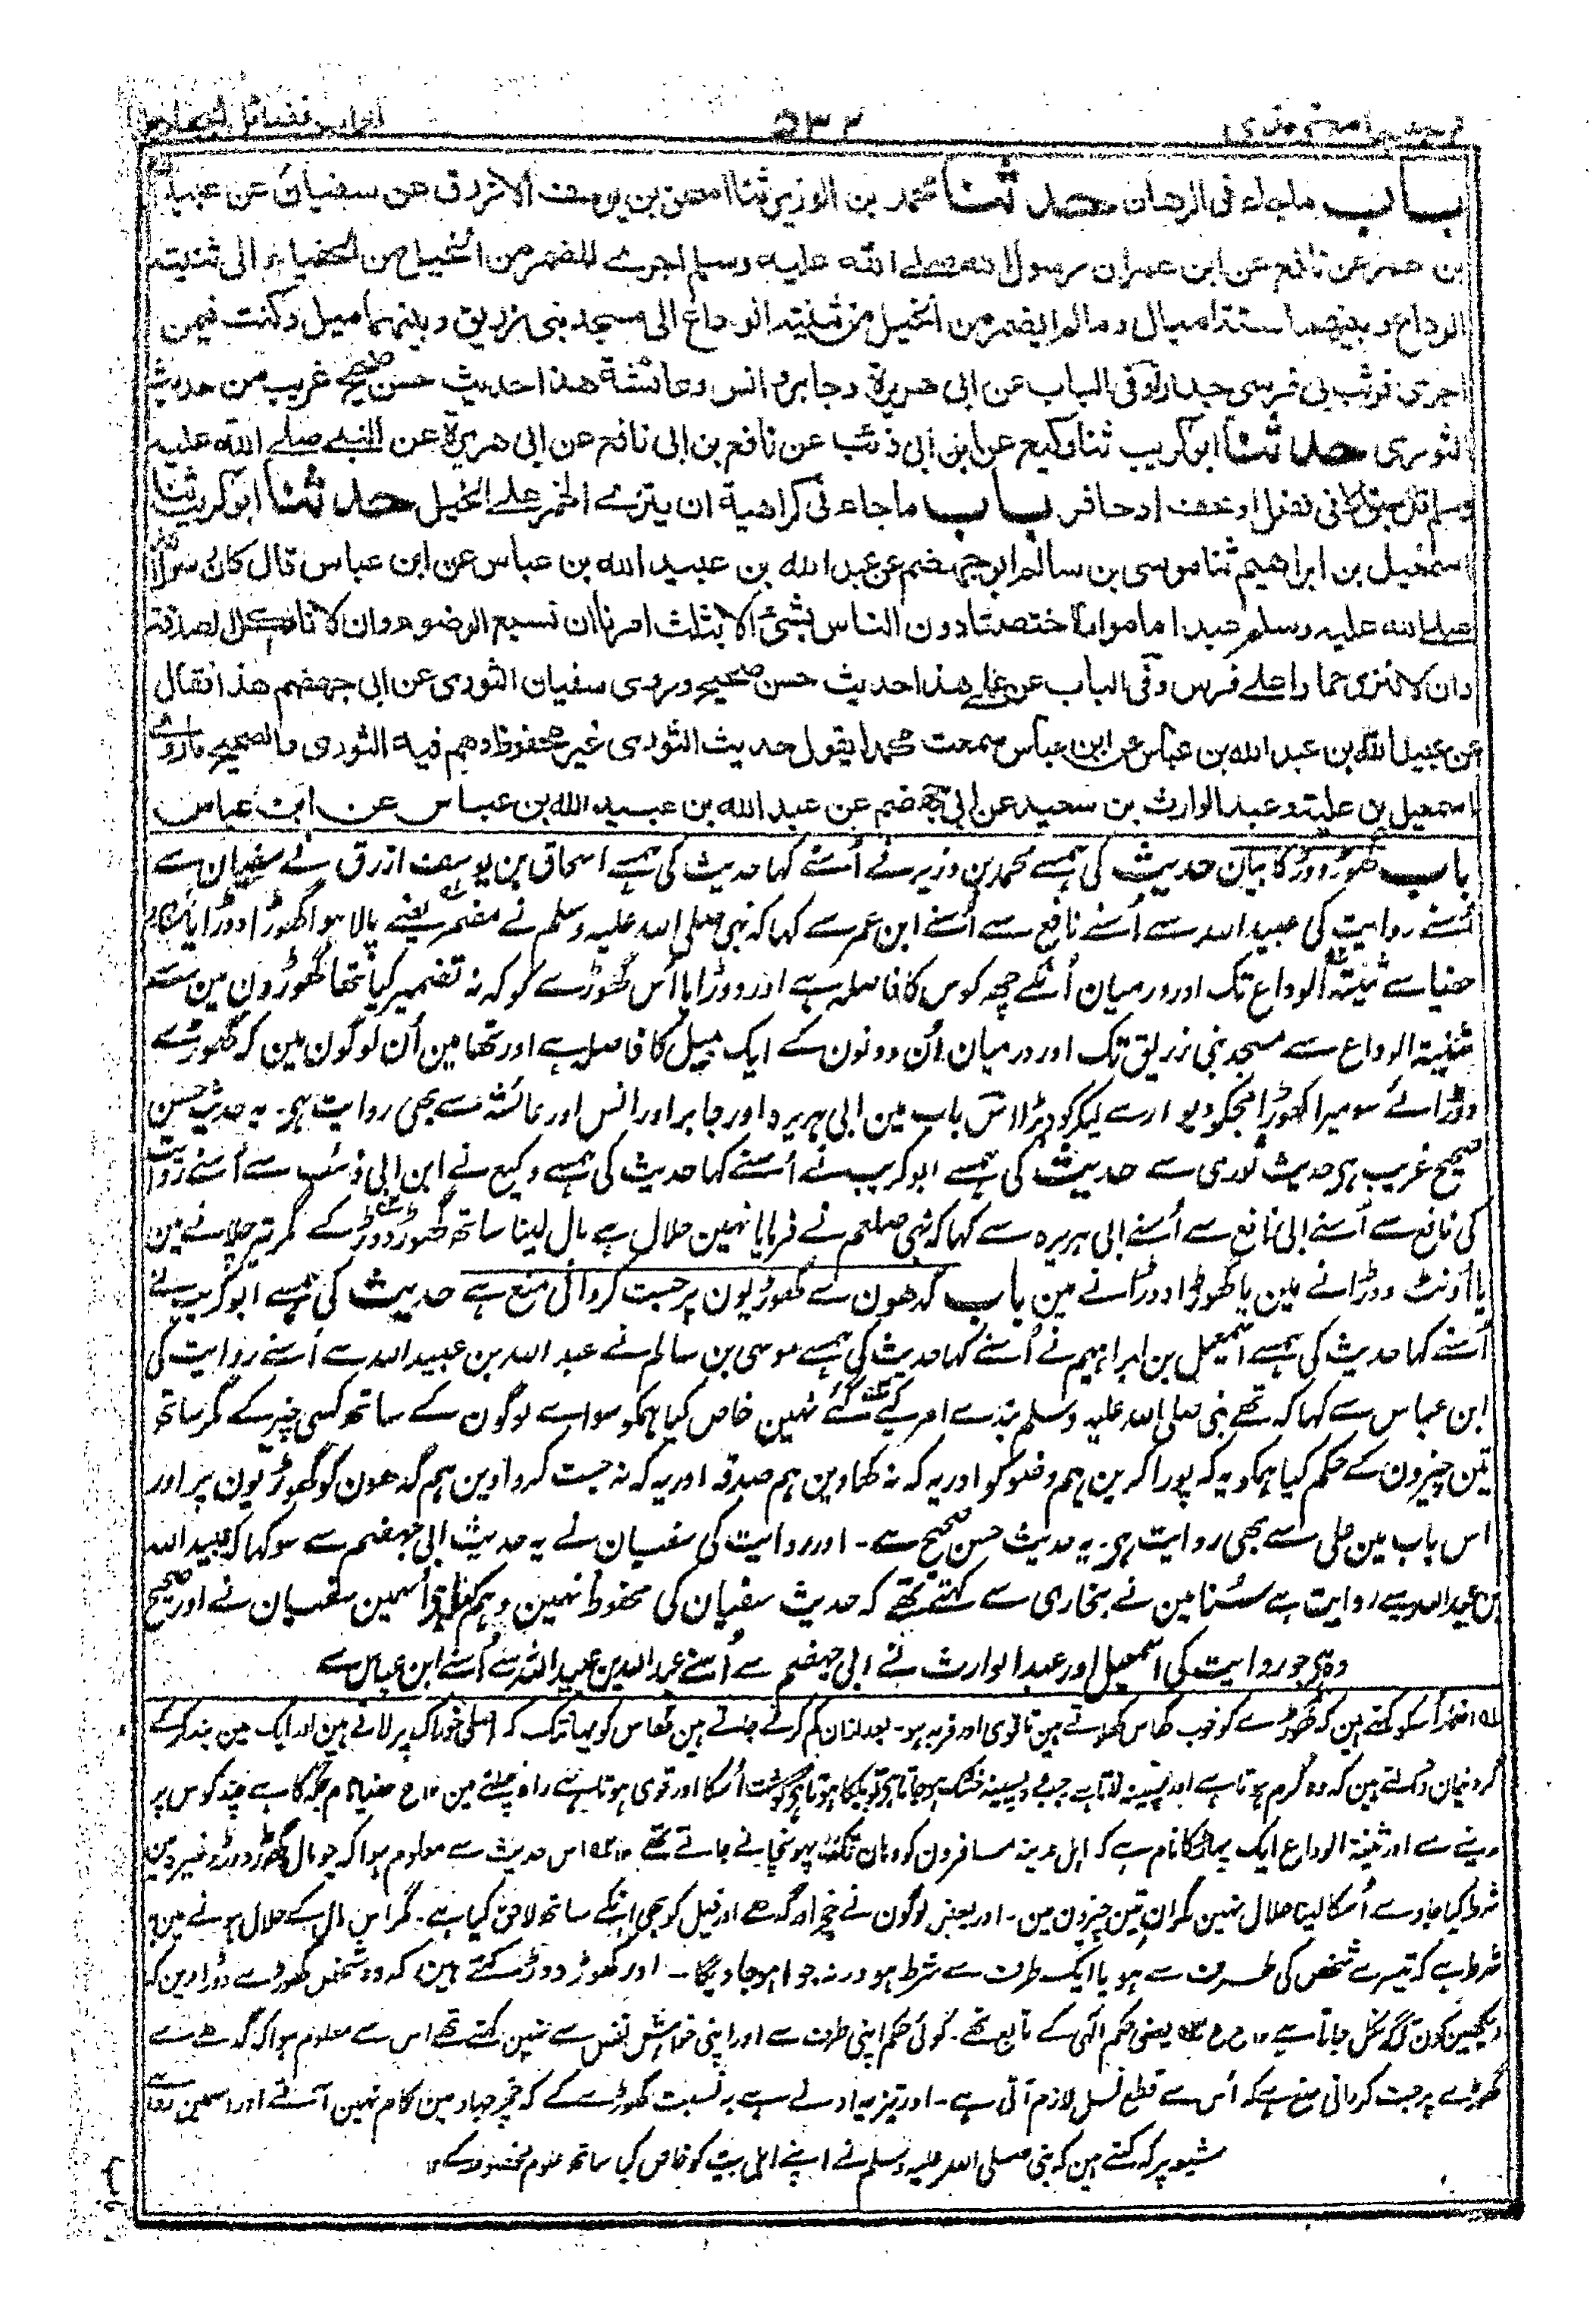 ترجمہ جامع ترمذی ۵۳۲ ابواب فضائل الجهاد
باب ماجاء فی الرهان حدثنا محمد بن الوزیر ثنا اسحق بن یوسف الازرق عن سفیان عن عبید الله
بن عمر عن نافع عن ابن عمر ان رسول الله صلے الله علیه وسلم اجرے المضمر من الخیل من الحفیاء الی ثنیة
الوداع و بینهما ستة امیال وما لم یضمر من الخیل من ثنیة الوداع الی مسجد بنی زریق و بینهما میل وکنت فیمن
اجری فوثب بی فرسی جدارا وفی الباب عن ابی هریرة وجابر وانس وعائشة هذا حدیث حسن صحیح غریب من حدیث
الثوری حدثنا ابو کریب ثنا وکیع عن ابن ابی ذئب عن نافع بن ابی نافع عن ابی هریرة عن النبی صلے الله علیه
وسلم قال لا سبق الا فی نصل او خف او حافر باب ما جاء فی کراهیة ان ینزے الحمر علے الخیل حدثنا ابو کریب ثنا
اسمعیل بن ابراهیم ثنا موسی بن سالم ابو جهضم عن عبد الله بن عبید الله بن عباس عن ابن عباس قال کان رسول الله
صلے الله علیه وسلم عبدا مامورا ما اختصنا دون الناس بشیٔ الا بثلث امرنا ان نسبغ الوضوء وان لا ناکل الصدقة
وان لا ننزی حمارا علے فرس وفی الباب عن علی هذا حدیث حسن صحیح وروی سفیان الثوری عن ابی جهضم هذا فقال
عن عبید الله بن عبد الله بن عباس عن ابن عباس سمعت محمدا یقول حدیث الثوری غیر محفوظ وهم فیه الثوری والصحیح ماروے
اسمعیل بن علیة وعبد الوارث بن سعید عن ابی جهضم عن عبد الله بن عبید الله بن عباس عن ابن عباس
باب گھوڑ دوڑ کا بیان حدیث کی ہمسے محمد بن وزیر نے اُسنے کہا حدیث کی ہمسے اسحاق بن یوسف ازرق نے سفیان سے
اُسنے روایت کی عبید اللہ سے اُسنے نافع سے اُسنے ابن عمر سے کہا کہ نبی صلی اللہ علیہ وسلم نے مضمر یعنے پالا ہوا گھوڑا دوڑایا
حفیا سے ثنیۃ الوداع تک اور درمیان اُنکے چھ کوس کا فاصلہ ہے اور دوڑایا اُس گھوڑے کو کہ نہ تضمیر کیا تھا گھوڑون مین سے
ثنیۃ الوداع سے مسجد بنی زریق تک اور درمیان اُن دونون کے ایک میل کا فاصلہ ہے اور تھا مین اُن لوگون مین کہ گھوڑے
دوڑائے سو میرا گھوڑا مجکو دیوار سے لیکر کود پڑا اس باب مین ابی ہریرہ اور جابر اور انس اور عائشہ سے بھی روایت ہی۔ یہ حدیث حسن
صحیح غریب ہی حدیث ثوری سے حدیث کی ہمسے ابو کریب نے اُسنے کہا حدیث کی ہمسے وکیع نے ابن ابی ذئب سے اُسنے روایت
کی نافع سے اُسنے ابی نافع سے اُسنے ابی ہریرہ سے کہا کہ نبی صلعم نے فرمایا نہین حلال ہے مال لینا ساتھ گھوڑ دوڑ کے مگر تیر چلانے مین
یا اُونٹ دوڑانے مین یا گھوڑا دوڑانے مین باب گدھون سے گھوڑیون پر جست کروانی منع ہے حدیث کی ہمسے ابو کریب نے
اُسنے کہا حدیث کی ہمسے اسمعیل بن ابراہیم نے اُسنے کہا حدیث کی ہمسے موسی بن سالم نے عبد اللہ بن عبید اللہ سے اُسنے روایت کی
ابن عباس سے کہا کہ تھے نبی صلی اللہ علیہ وسلم بندے امر کیے گئے نہین خاص کیا ہمکو سواے لوگون کے ساتھ کسی چیز کے مگر ساتھ
تین چیزون کے حکم کیا ہمکو یہ کہ پورا کرین ہم وضو کو اور یہ کہ نہ کھاوین ہم صدقہ اور یہ کہ نہ جست کرواوین ہم گدھون کو گھوڑیون پر اور
اس باب مین علی سے بھی روایت ہی۔ یہ حدیث حسن صحیح ہے۔ اور روایت کی سفیان نے یہ حدیث ابی جہضم سے سو کہا کہ عبید اللہ
بن عبد اللہ سے روایت ہے سُنا مین نے بخاری سے کہتے تھے کہ حدیث سفیان کی محفوظ نہین وہم کیا اُسمین سفیان نے اور صحیح
وہ ہی جو روایت کی اسمعیل اور عبد الوارث نے ابی جہضم سے اُسنے عبد اللہ بن عبید اللہ سے اُسنے ابن عباس سے
اُسکو کہتے ہین کہ گھوڑے کو خوب گھاس کھلاتے ہین تا قوی اور فربہ ہو۔ بعد ازان کم کرتے جاتے ہین گھاس کو یہانتک کہ اصلی خوراک پر لاتے ہین اور ایک مین بند کرکے
کہ وہ گرم ہوتا ہے اور پسینہ لاتا ہے جب پسینہ خشک ہو جاتا ہی گوشت اُسکا اور قوی ہوتا ہے راہ چلنے مین ۱۲ ح حفیا نام جگہ کا ہے چند کوس پر
مدینے سے اور ثنیۃ الوداع ایک پہاڑ کا نام ہے کہ اہل مدینہ مسافرون کو وہان تک پہونچانے جاتے تھے ۱۲ اس حدیث سے معلوم ہوا کہ جو مال گھوڑ دوڑ وغیرہ مین
شرط کیا جاوے اُسکا لینا حلال نہین مگر ان تین چیزون مین۔ اور بعض لوگون نے خچر اور گدھے اور فیل کو بھی انکے ساتھ لاحق کیا ہے۔ مگر اس مال کے حلال ہونے مین یہ
شرط ہے کہ تیسرے شخص کی طرف سے ہو یا ایک طرف سے شرط ہو ورنہ جوا ہو جاویگا۔ اور گھوڑ دوڑ کہتے ہین کہ دو شخص گھوڑے دوڑاوین کہ
دیکھین کون آگے نکل جاتا ہے ۱۲ یعنی حکم الٰہی کے تابع تھے۔ کوئی حکم اپنی طرف سے اور اپنی خواہش نفس سے نہین کہتے تھے اس سے معلوم ہوا کہ گدھے سے
گھوڑے پر جست کروانی منع ہے کہ اُس سے قطع نسل لازم آتی ہے۔ اور نیز یہ ادنے ہے بہ نسبت گھوڑے کے کہ خچر جہاد مین کام نہین آتے اور اسمین رد ہے
شیعو پر کہ کہتے ہین کہ نبی صلی اللہ علیہ وسلم نے اپنے اہل بیت کو خاص کیا ساتھ علوم مخصوصہ کے ۱۲